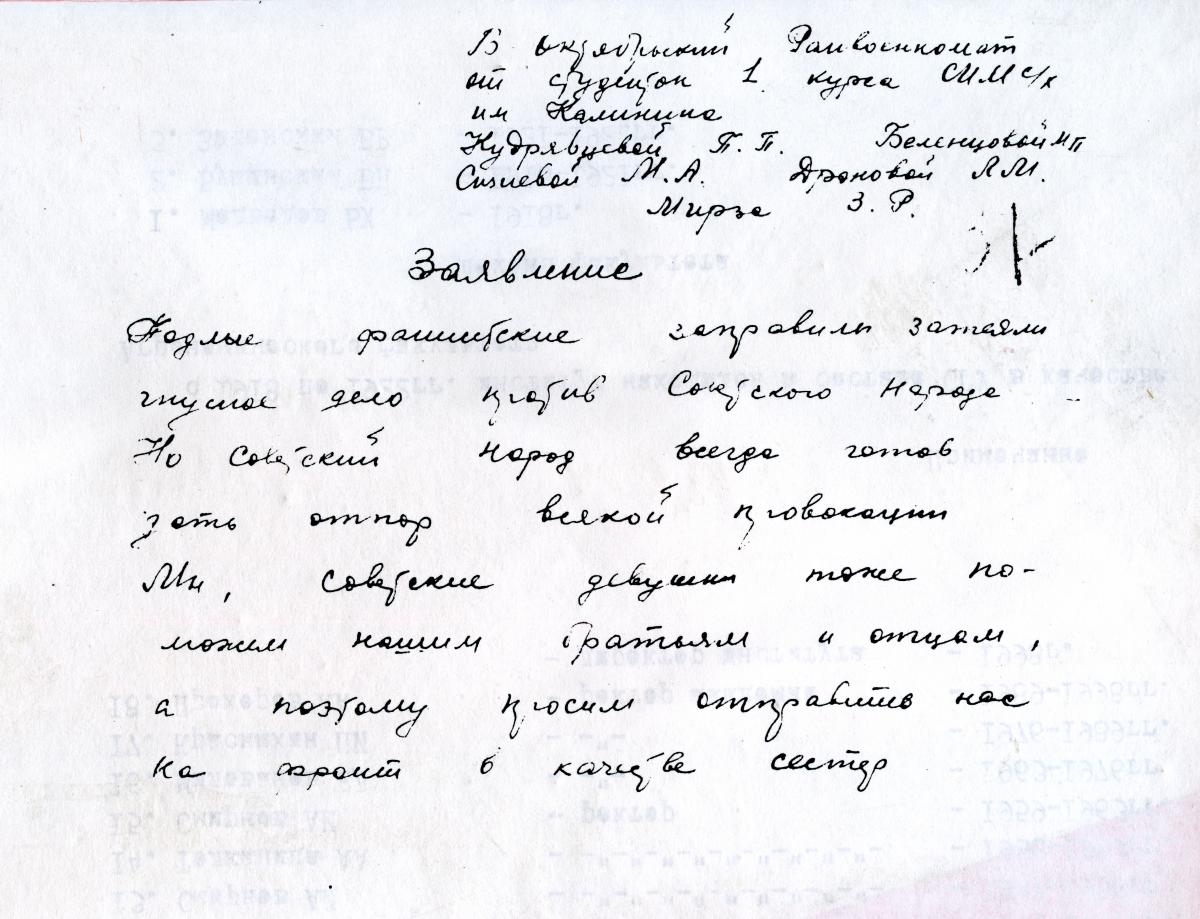 В октябрьский Райвоенкомат
от студенток 1 курса СИМС/х
им Калинина
Кудрявцевой П. П. Беленцовой
М. А. Дроновой Л М.
Мирза З. Р.
Заявление
Подлые фашистские заправилы затеяли
гнусное дело против Советского народа
Но советский народ всегда готов
дать отпор всякой провокации
Мы, советские девушки тоже по-
можем нашим братьям и отцам,
а поэтому просим отправить нас
на фронт в качестве сестер